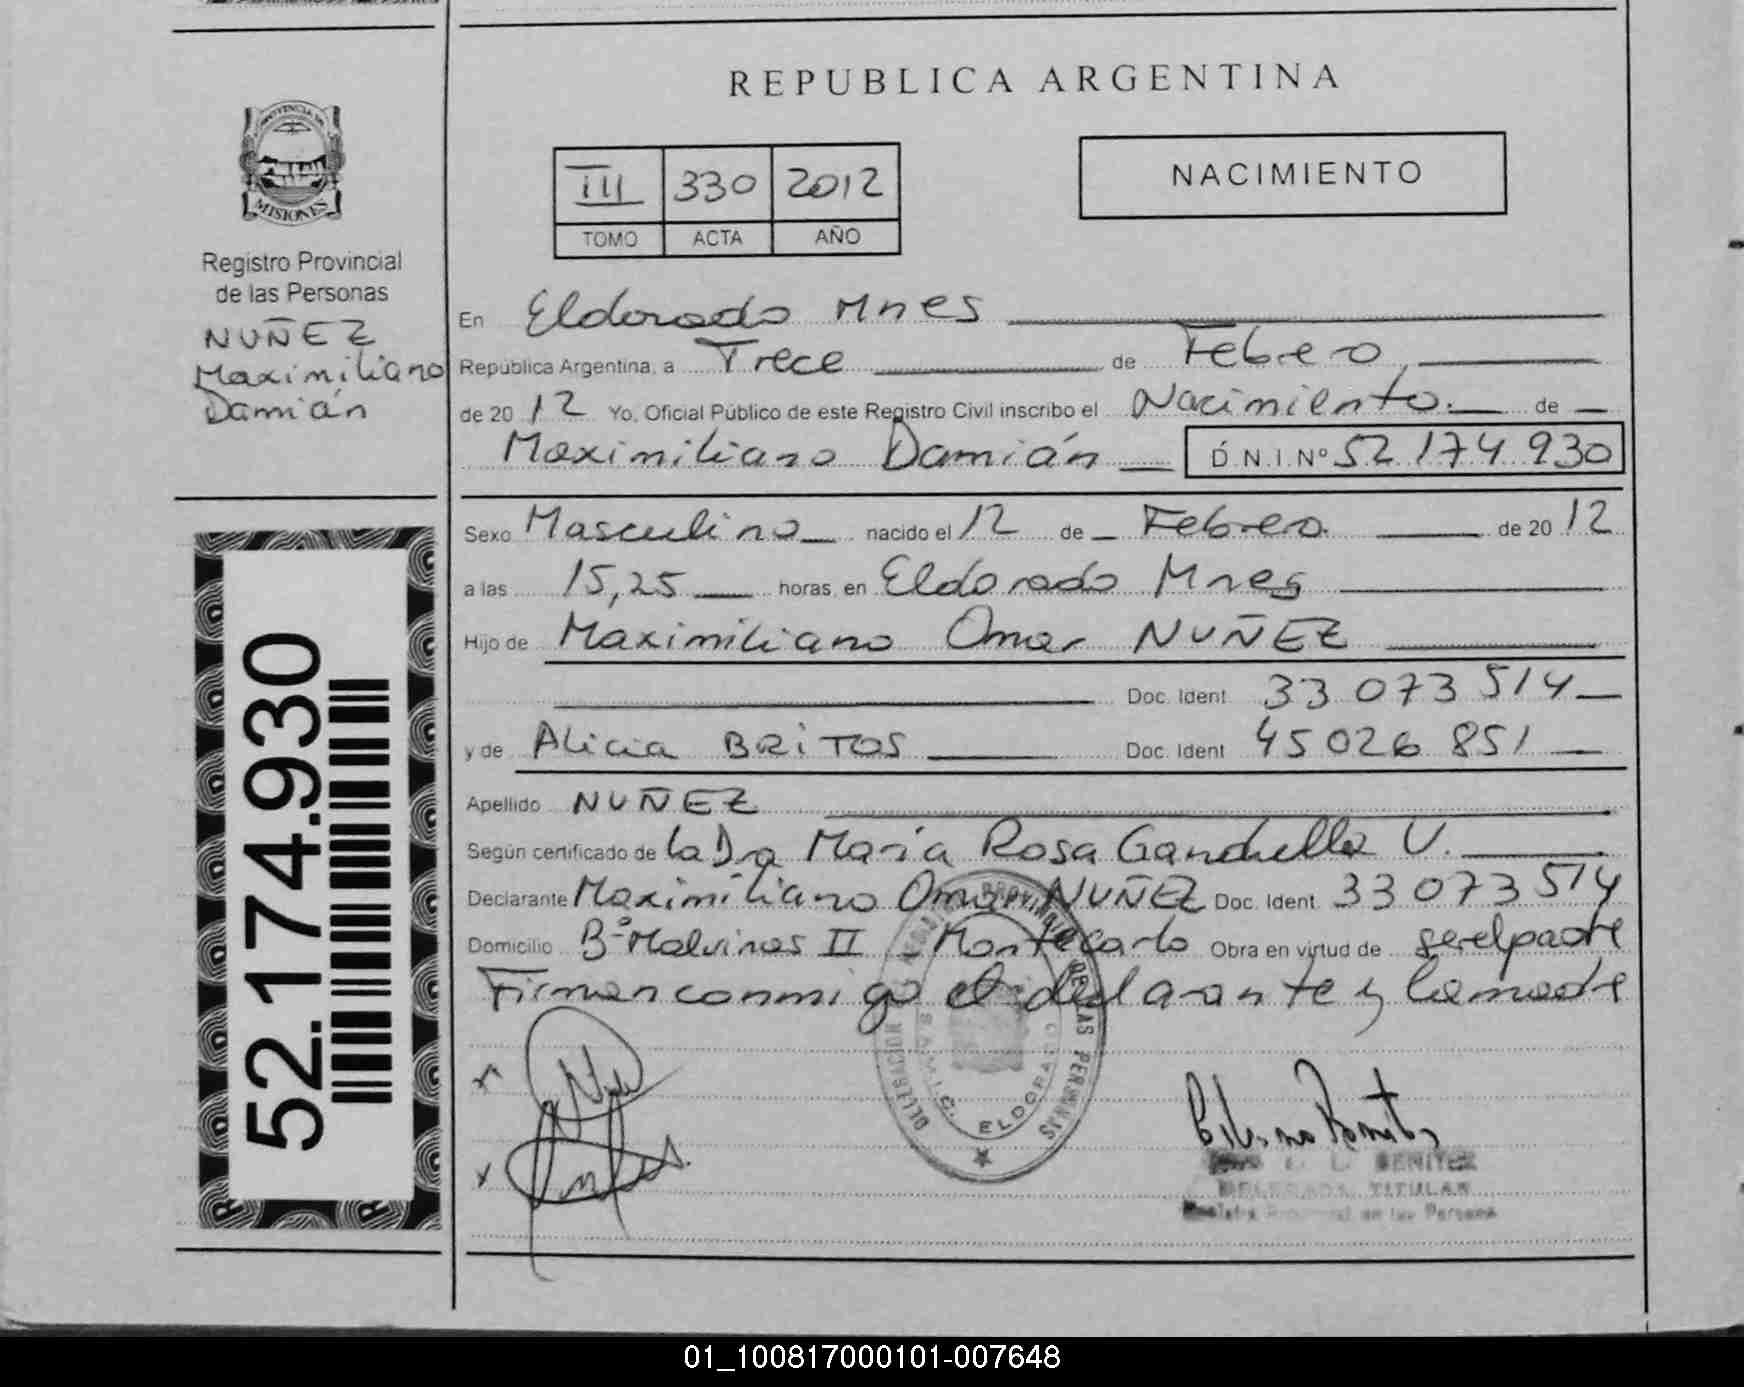 REPUBLICA ARGENTINA
PROVINCIA DE
MISIONES
Registro Provincial
de las Personas
NUÑEZ
Maximiliano
Damián
52.174.930
III 330 2012
TOMO ACTA AÑO
NACIMIENTO
En Eldorado Mnes
República Argentina, a Trece de Febrero
de 20 12 Yo, Oficial Público de este Registro Civil inscribo el Nacimiento. de
Maximiliano Damián D.N.I.Nº 52 174 930
Sexo Masculino nacido el 12 de Febrero. de 20 12
a las 15,25 horas, en Eldorado Mnes
Hijo de Maximiliano Omar NUÑEZ
Doc. Ident 33 073 514
y de Alicia BRITOS Doc. Ident 45 026 851
Apellido NUÑEZ
Según certificado de la Dra Maria Rosa V.
Declarante Maximiliano Omar NUÑEZ Doc. Ident. 33 073 514
Domicilio Bº Malvinas II Montecarlo Obra en virtud de ser el padre
Firman conmigo el declarante y la madre
x
x
DELEGACION PROVINCIAL DE LAS PERSONAS
ELDORADO
BENITEZ
DELEGADA TITULAR
01_100817000101-007648